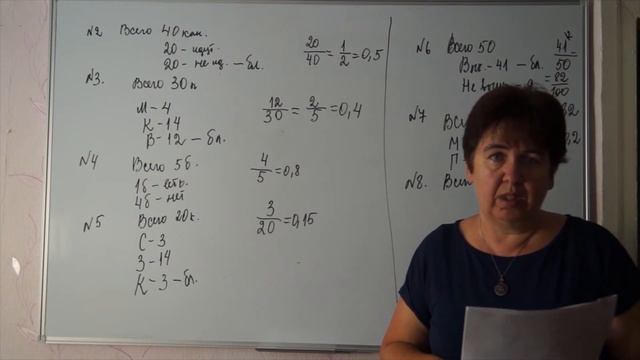 №2 Всего 40 кан.
20 - идит
20 - не ид. - бл.
20/40 = 1/2 = 0,5
№3. Всего 30 п
М - 4
К - 14
В - 12 - бл.
12/30 = 2/5 = 0,4
№4 Всего 5б.
1б - есть
4б - нет
4/5 = 0,8
№5 Всего 20к.
С - 3
З - 14
К - 3 - бл.
3/20 = 0,15
№6 Всего 50
41 - бл.
41/50 =
= 82/100
№7
М
П
№8. Всег